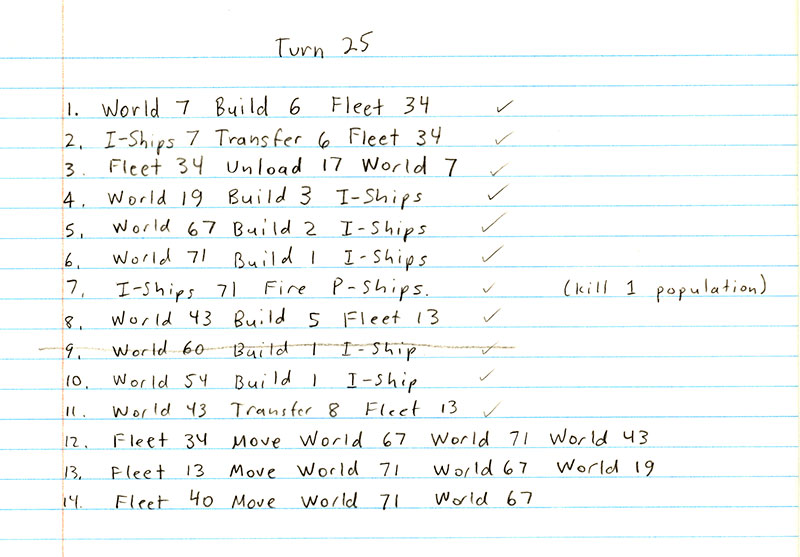 Turn 25
1. World 7 Build 6 Fleet 34 ✓
2. I-Ships 7 Transfer 6 Fleet 34 ✓
3. Fleet 34 Unload 17 World 7 ✓
4. World 19 Build 3 I-Ships ✓
5. World 67 Build 2 I-Ships ✓
6. World 71 Build 1 I-Ships ✓
7. I-Ships 71 Fire P-Ships. ✓ (kill 1 population)
8. World 43 Build 5 Fleet 13 ✓
9. World 60 Build 1 I-Ship ✓
10. World 54 Build 1 I-Ship ✓
11. World 43 Transfer 8 Fleet 13 ✓
12. Fleet 34 Move World 67 World 71 World 43
13. Fleet 13 Move World 71 World 67 World 19
14. Fleet 40 Move World 71 World 67